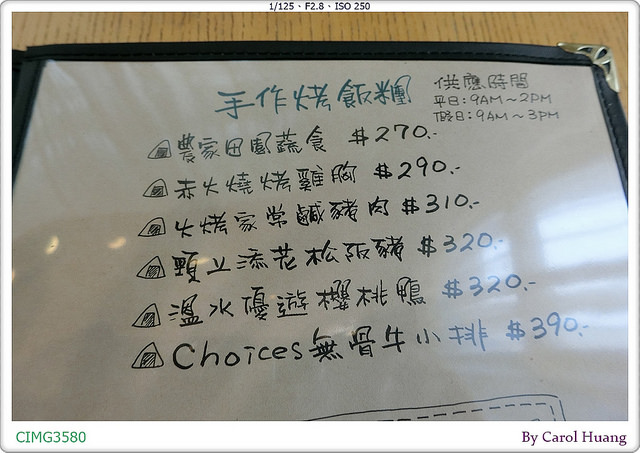 1/125、F2.8、ISO 250
手作烤飯糰
供應時間
平日:9AM~2PM
假日:9AM~3PM
農家田園蔬食 $270.-
赤火燒烤雞胸 $290.-
火烤家常鹹豬肉 $310.-
顆立添花松阪豬 $320.-
溫水優遊櫻桃鴨 $320.-
Choices無骨牛小排 $390.-
CIMG3580
By Carol Huang